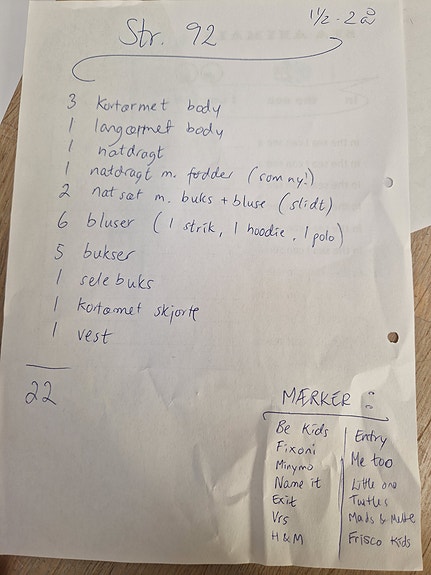 1 1/2 - 2 å
Str. 92
3 kortærmet body
1 langærmet body
1 natdragt
1 natdragt m. fødder (som ny!)
2 natsæt m. buks + bluse (slidt)
6 bluser (1 strik, 1 hoodie, 1 polo)
5 bukser
1 sele buks
1 kortærmet skjorte
1 vest
22
MÆRKER:
Be Kids
Fixoni
Minymo
Name it
Exit
Vrs
H&M
Entry
Me too
Little one
Turtles
Mads & Mette
Frisco Kids